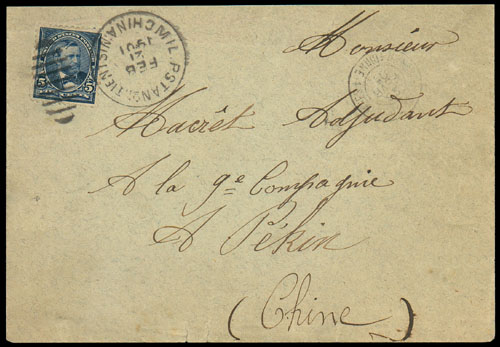 MIL. P.STA. NO. 1 TIENTSIN CHINA
FEB
21
1901
5
5
Monsieur
Macrêt Adjudant
A la 9e Compagnie
A Pékin
(Chine)